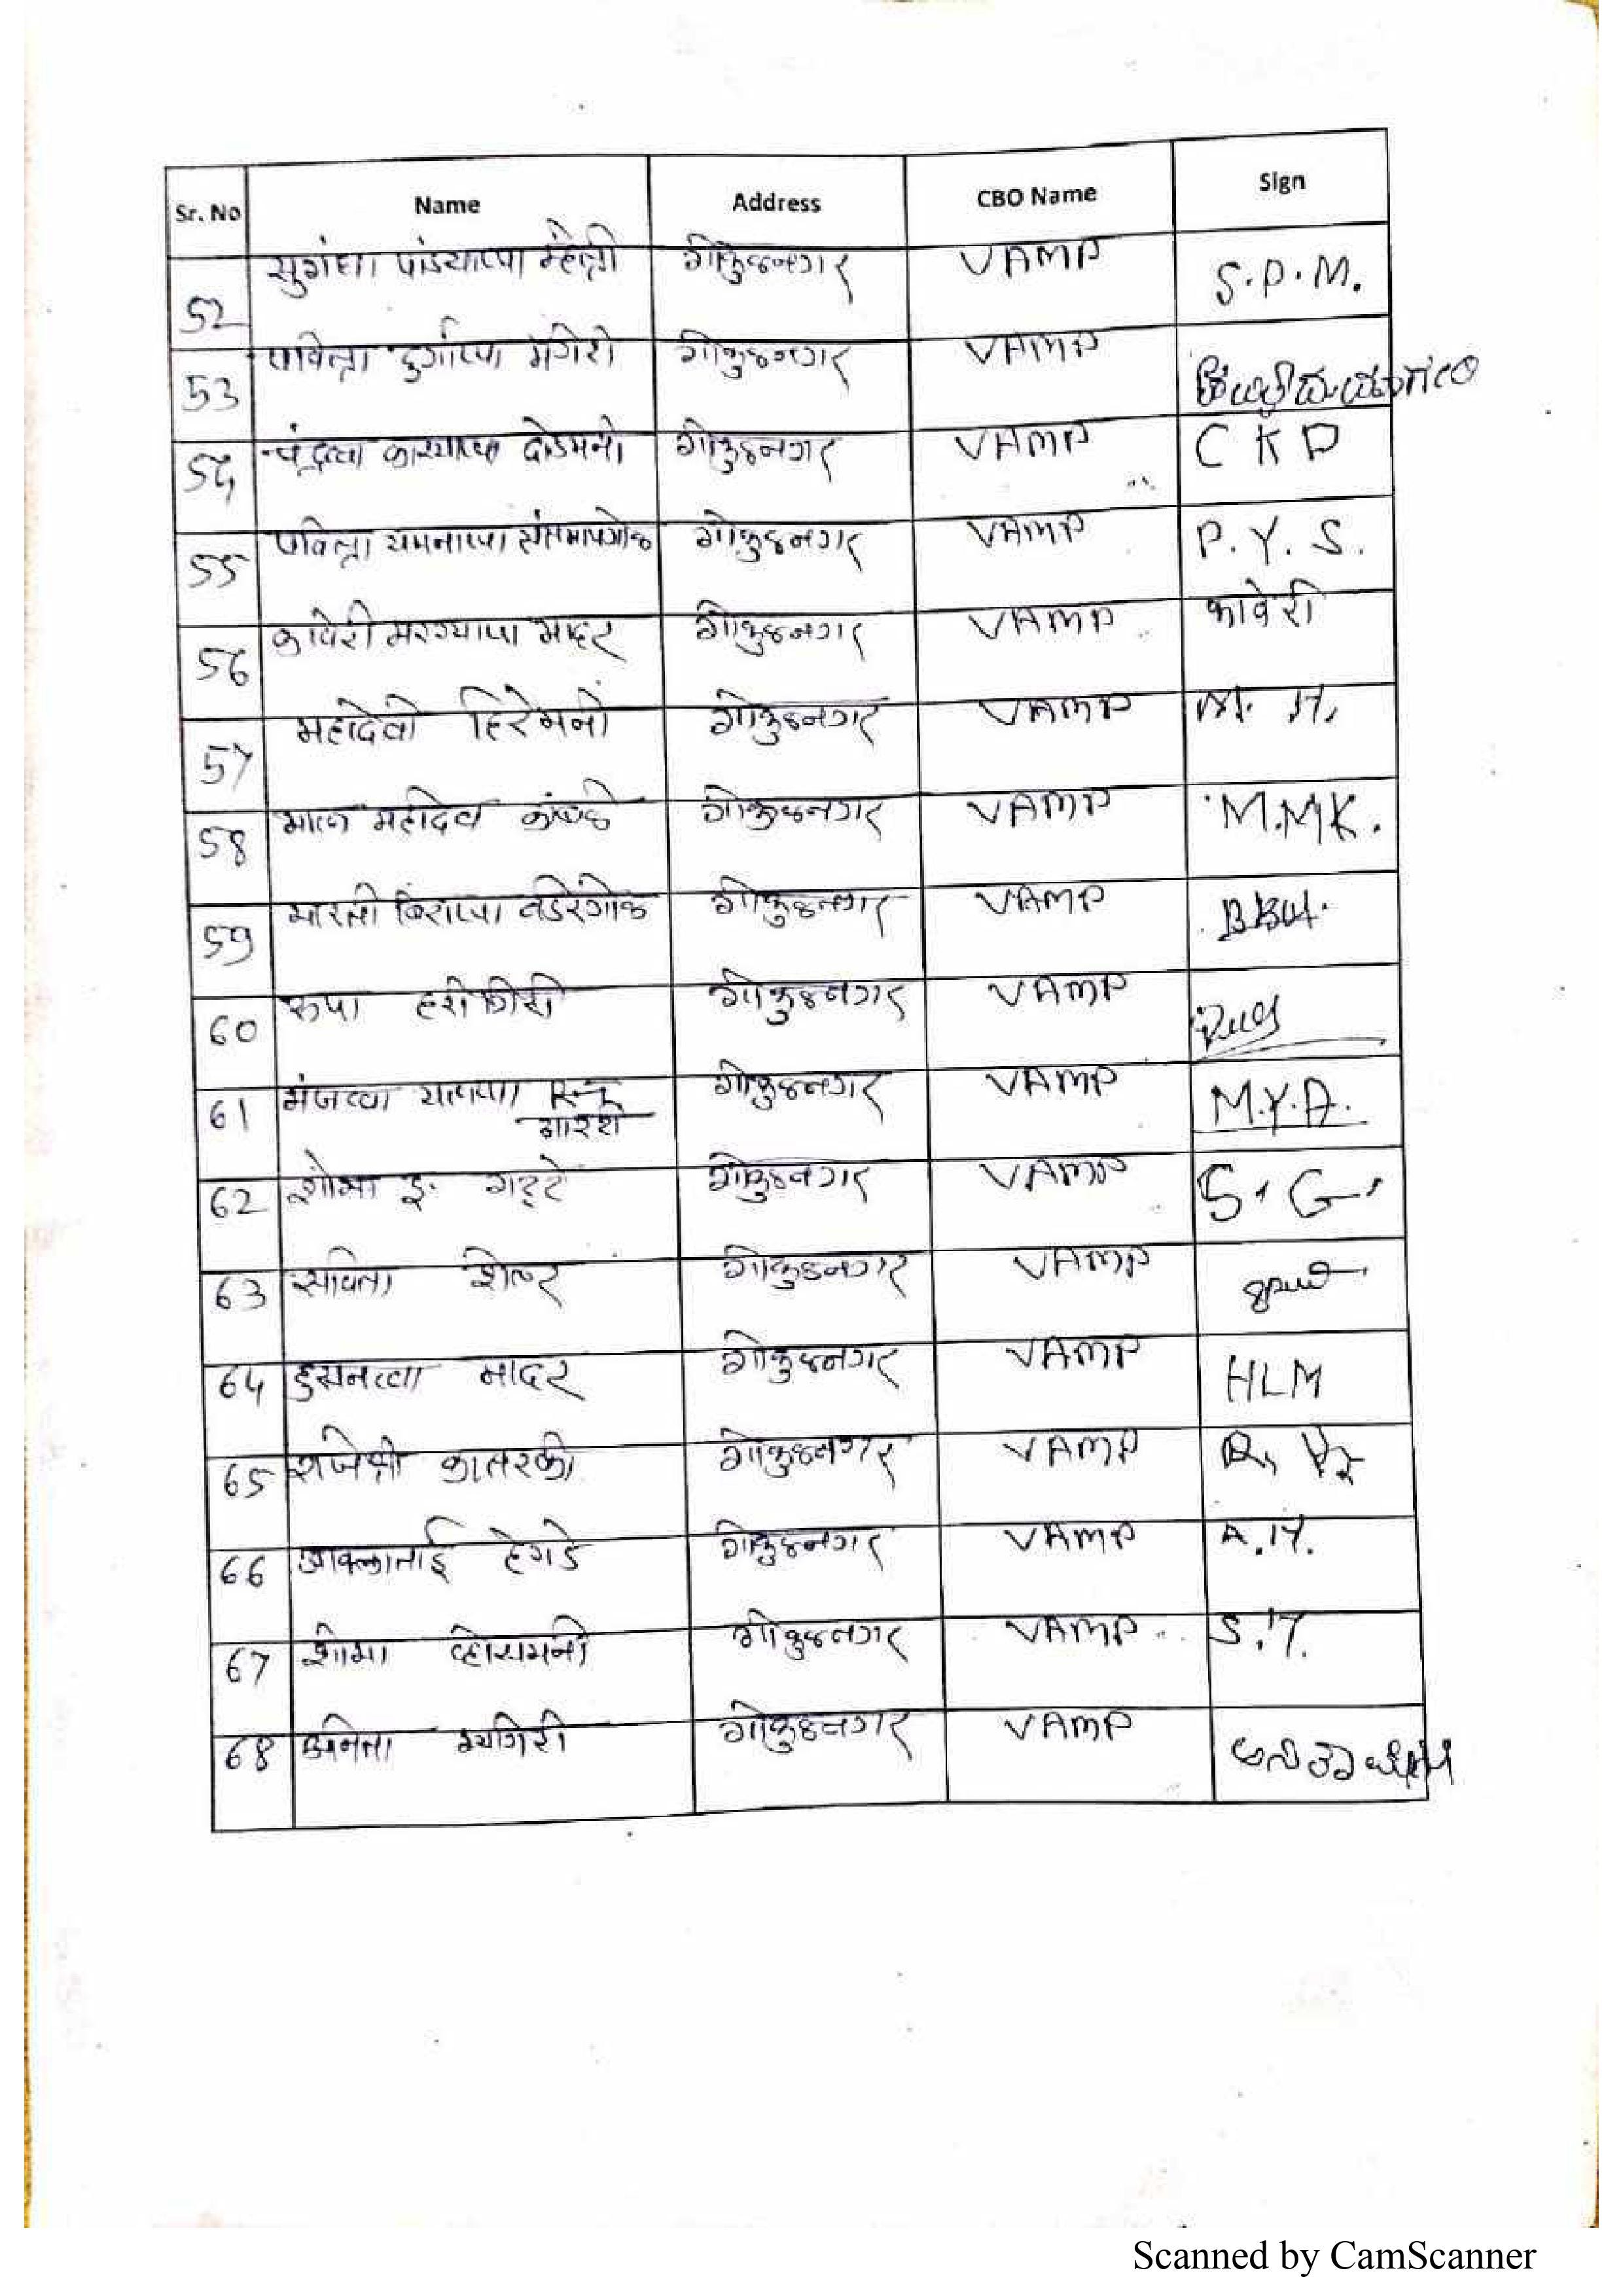 Sr. No Name Address CBO Name Sign
52 सुगंधा पांड्याप्पा म्हेत्री गोकुळनगर VAMP S.P.M.
53 पवित्रा दुर्गाप्पा मंगेरी गोकुळनगर VAMP
54 चंद्रव्वा काश्याप्पा दोडमनी गोकुळनगर VAMP C K D
55 पवित्रा यमनाप्पा गोकुळनगर VAMP P. Y. S.
56 कावेरी मरग्याप्पा मादर गोकुळनगर VAMP कावेरी
57 महादेवी हिरेमनी गोकुळनगर VAMP M. H.
58 माला महादेव कांबळे गोकुळनगर VAMP M.M.K.
59 भारती बिराप्पा वडेरगोळ गोकुळनगर VAMP
60 रुपा हरीकेरी गोकुळनगर VAMP
61 मंजव्वा यल्लप्पा गोकुळनगर VAMP M.Y.A.
62 शोभा इ. गट्टे गोकुळनगर VAMP S. G.
63 सविता गोकुळनगर VAMP
64 हुसनव्वा मादर गोकुळनगर VAMP HLM
65 राजेश्री कातरकी गोकुळनगर VAMP
66 अक्काताई हेगडे गोकुळनगर VAMP A.H.
67 शोभा गोकुळनगर VAMP S.H.
68 अनिता म्यगेरी गोकुळनगर VAMP
Scanned by CamScanner